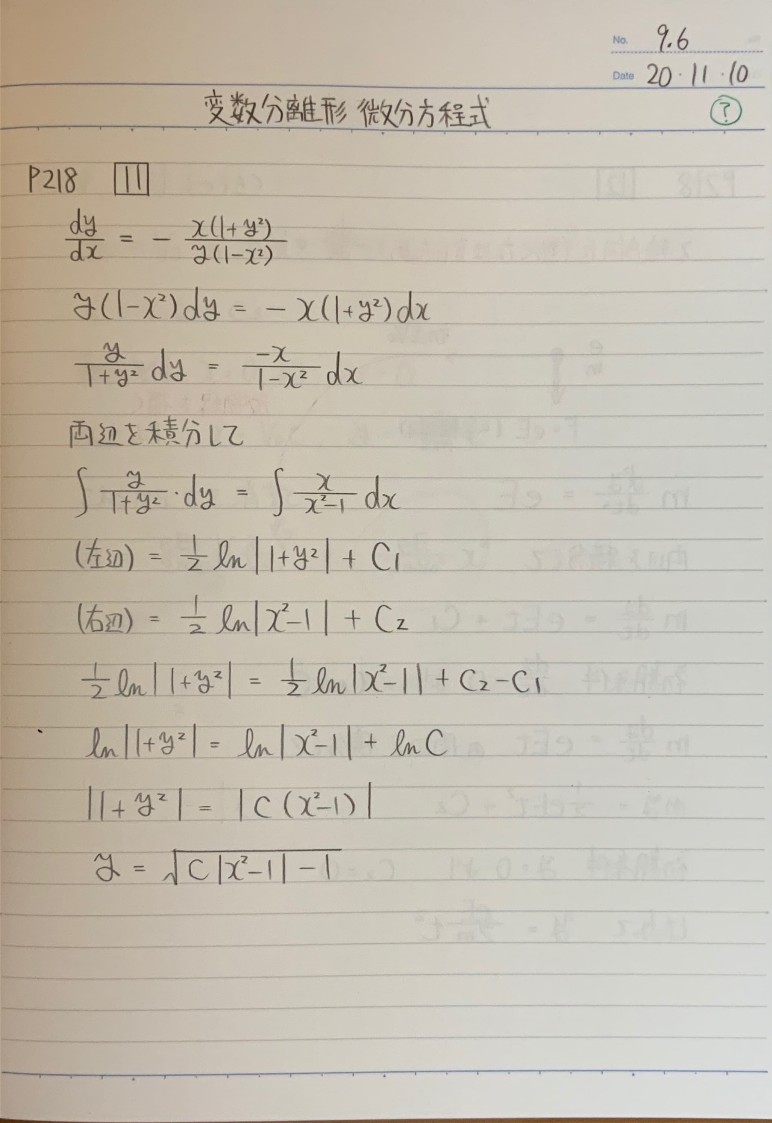 No. 9.6
Date 20・11・10
変数分離形 微分方程式 ?
P218 11
dy/dx = - x(1+y²)/y(1-x²)
y(1-x²)dy = -x(1+y²)dx
y/1+y² dy = -x/1-x² dx
両辺を積分して
∫ y/1+y² · dy = ∫ x/x²-1 dx
(左辺) = 1/2 ln|1+y²| + C₁
(右辺) = 1/2 ln|x²-1| + C₂
1/2 ln|1+y²| = 1/2 ln|x²-1| + C₂-C₁
ln|1+y²| = ln|x²-1| + lnC
|1+y²| = |C(x²-1)|
y = √C|x²-1|-1